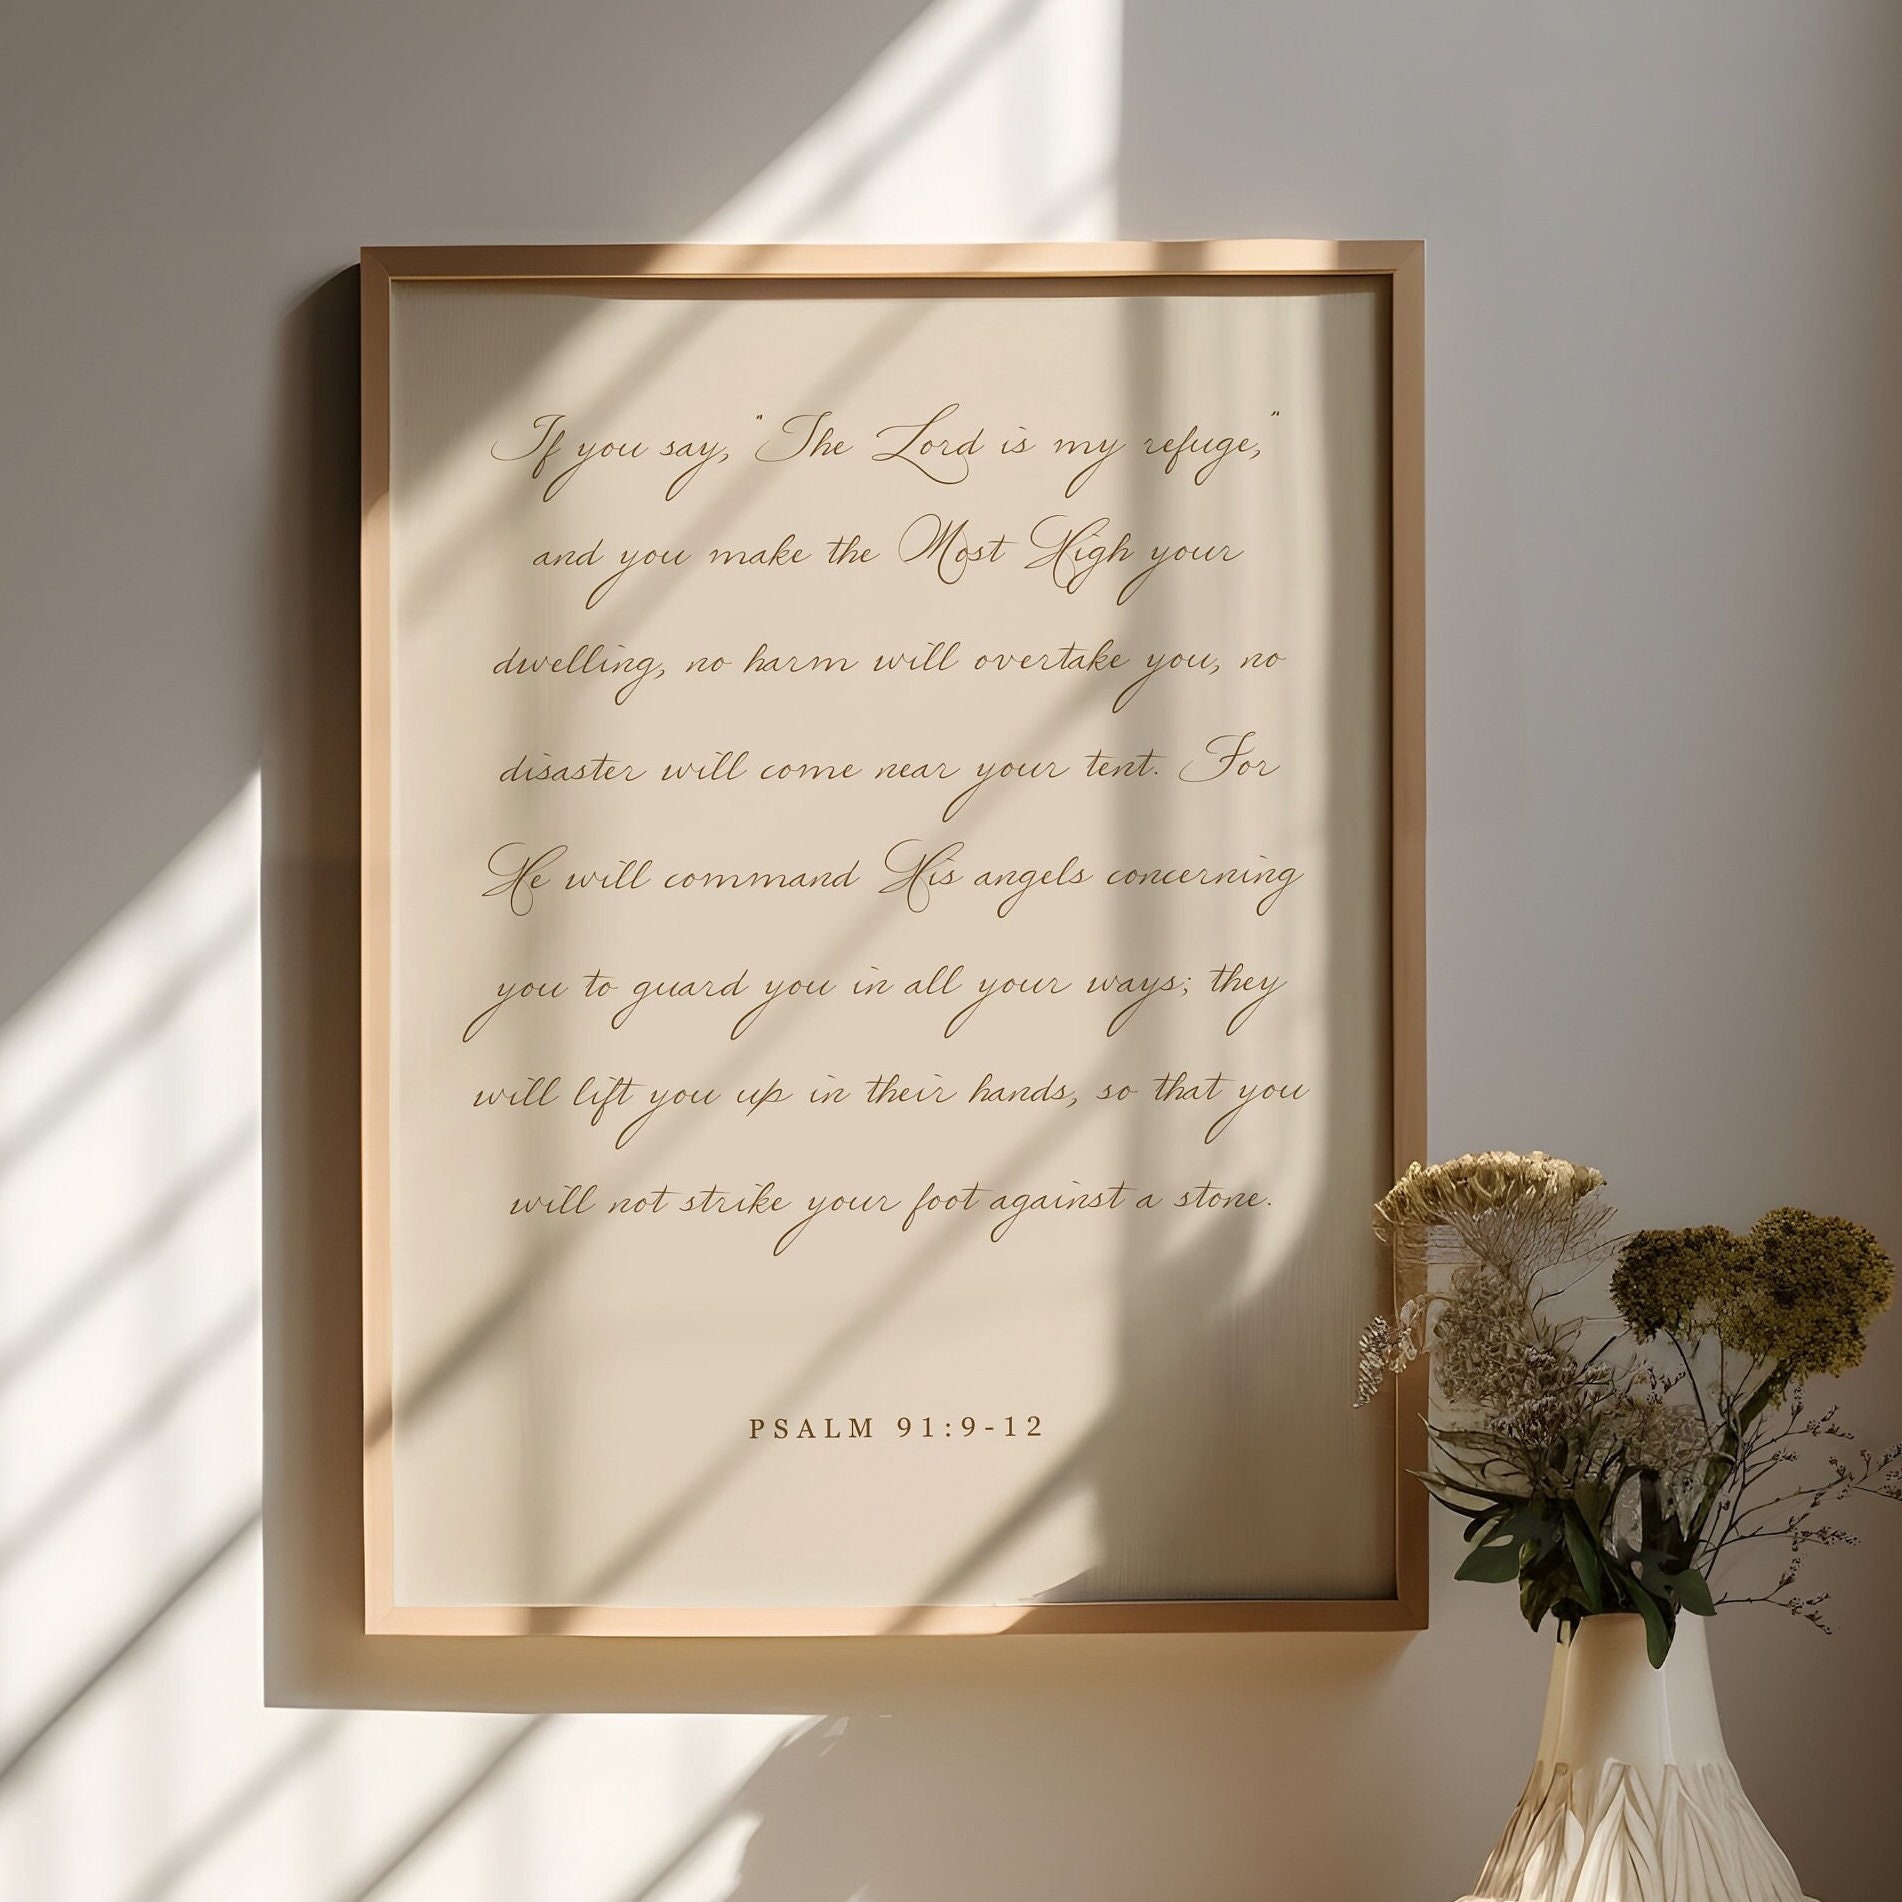 If you say, "The Lord is my refuge,"
and you make the Most High your
dwelling, no harm will overtake you, no
disaster will come near your tent. For
He will command His angels concerning
you to guard you in all your ways; they
will lift you up in their hands, so that you
will not strike your foot against a stone.
PSALM 91:9-12